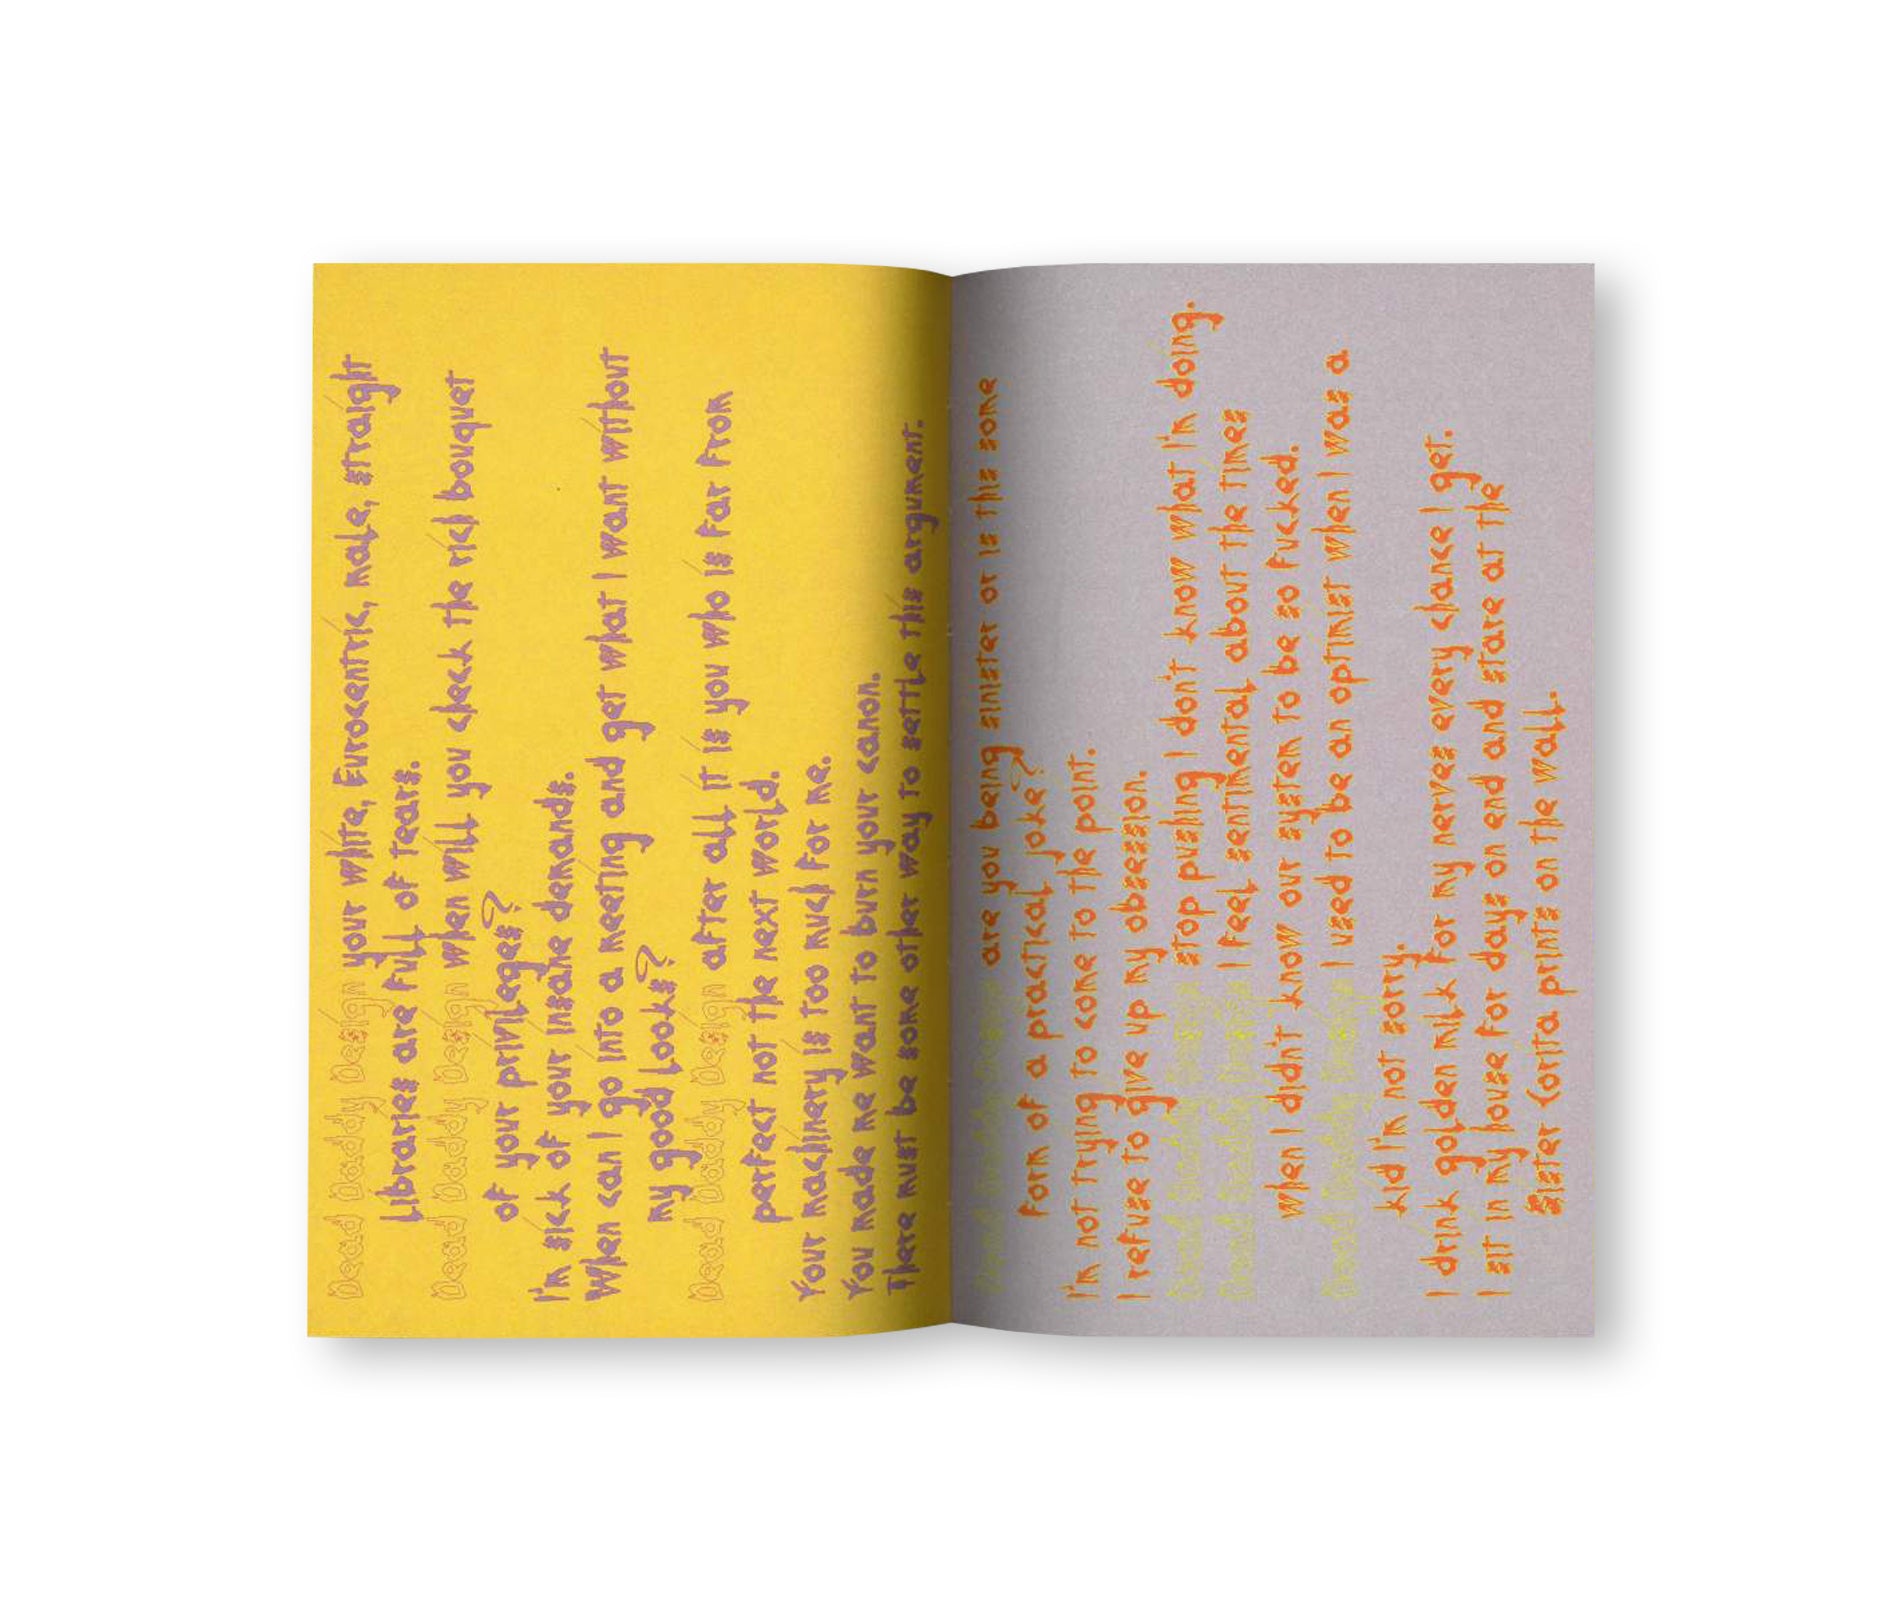 Dead Daddy Design your white, Eurocentric, male, straight
libraries are full of tears.
Dead Daddy Design when will you check the rich bouquet
of your privileges?
I'm sick of your insane demands.
When can I go into a meeting and get what I want without
my good looks?
Dead Daddy Design after all it is you who is far from
perfect not the next world.
Your machinery is too much for me.
You made me want to burn your canon.
There must be some other way to settle this argument.
Dead Daddy Design are you being sinister or is this some
form of a practical joke?
I'm not trying to come to the point.
I refuse to give up my obsession.
Dead Daddy Design stop pushing I don't know what I'm doing.
Dead Daddy Design I feel sentimental about the times
when I didn't know our system to be so fucked.
Dead Daddy Design I used to be an optimist when I was a
kid I'm not sorry.
I drink golden milk for my nerves every chance I get.
I sit in my house for days on end and stare at the
Sister Corita prints on the wall.